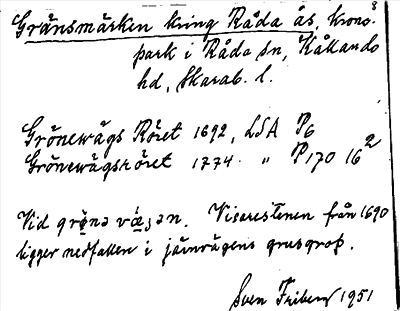 Gränsmärken kring Råda ås, krono-
park i Råda sn, Kållands
hd, Skarab. l.
Grönewägs Röret 1692, LSA P6
Grönewägsröret 1774. " P170 16²
Vid grö̱nə vä̱gən. Visarestenen från 1690
ligger nedfallen i järnvägens grusgrop.
Sven Friberg 1951